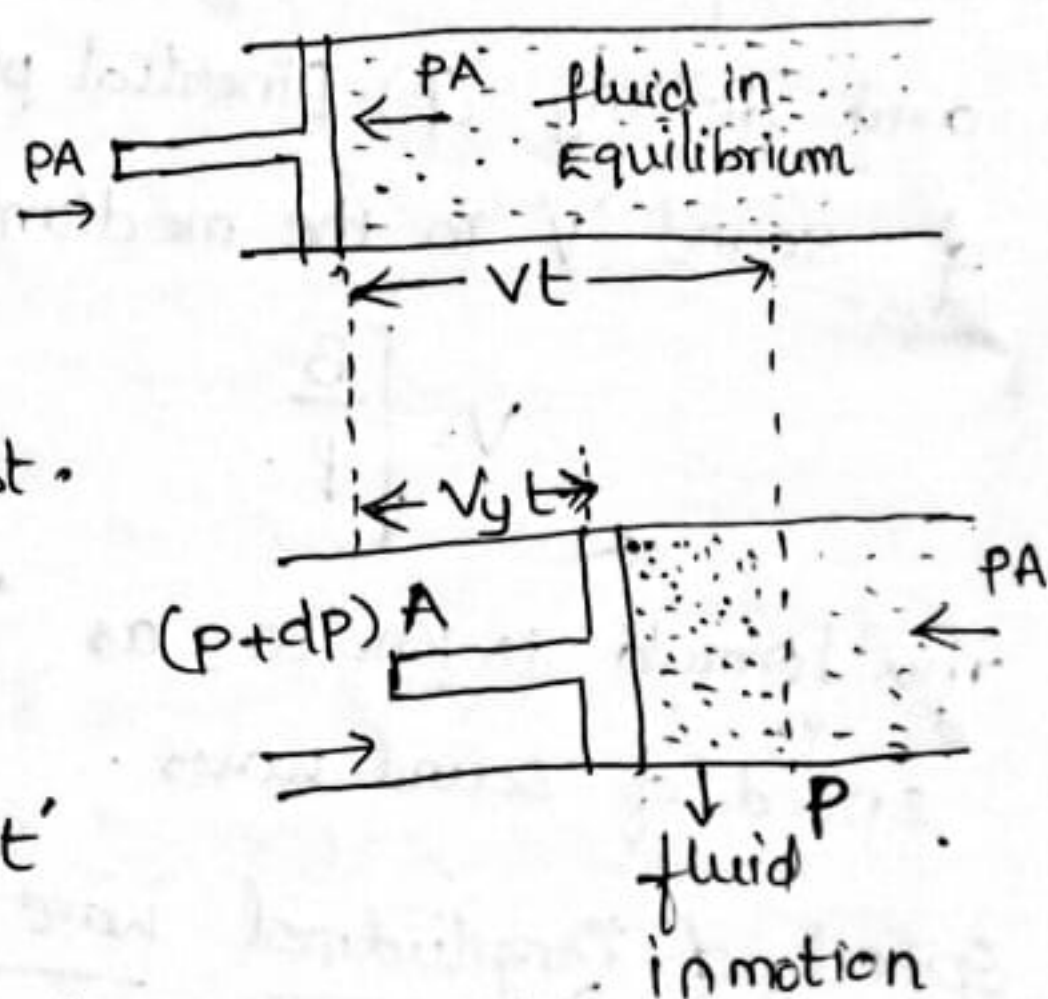 PA
PA
fluid in
Equilibrium
Vt
t.
Vyt
(P+dP) A
PA
t'
P
fluid
in motion